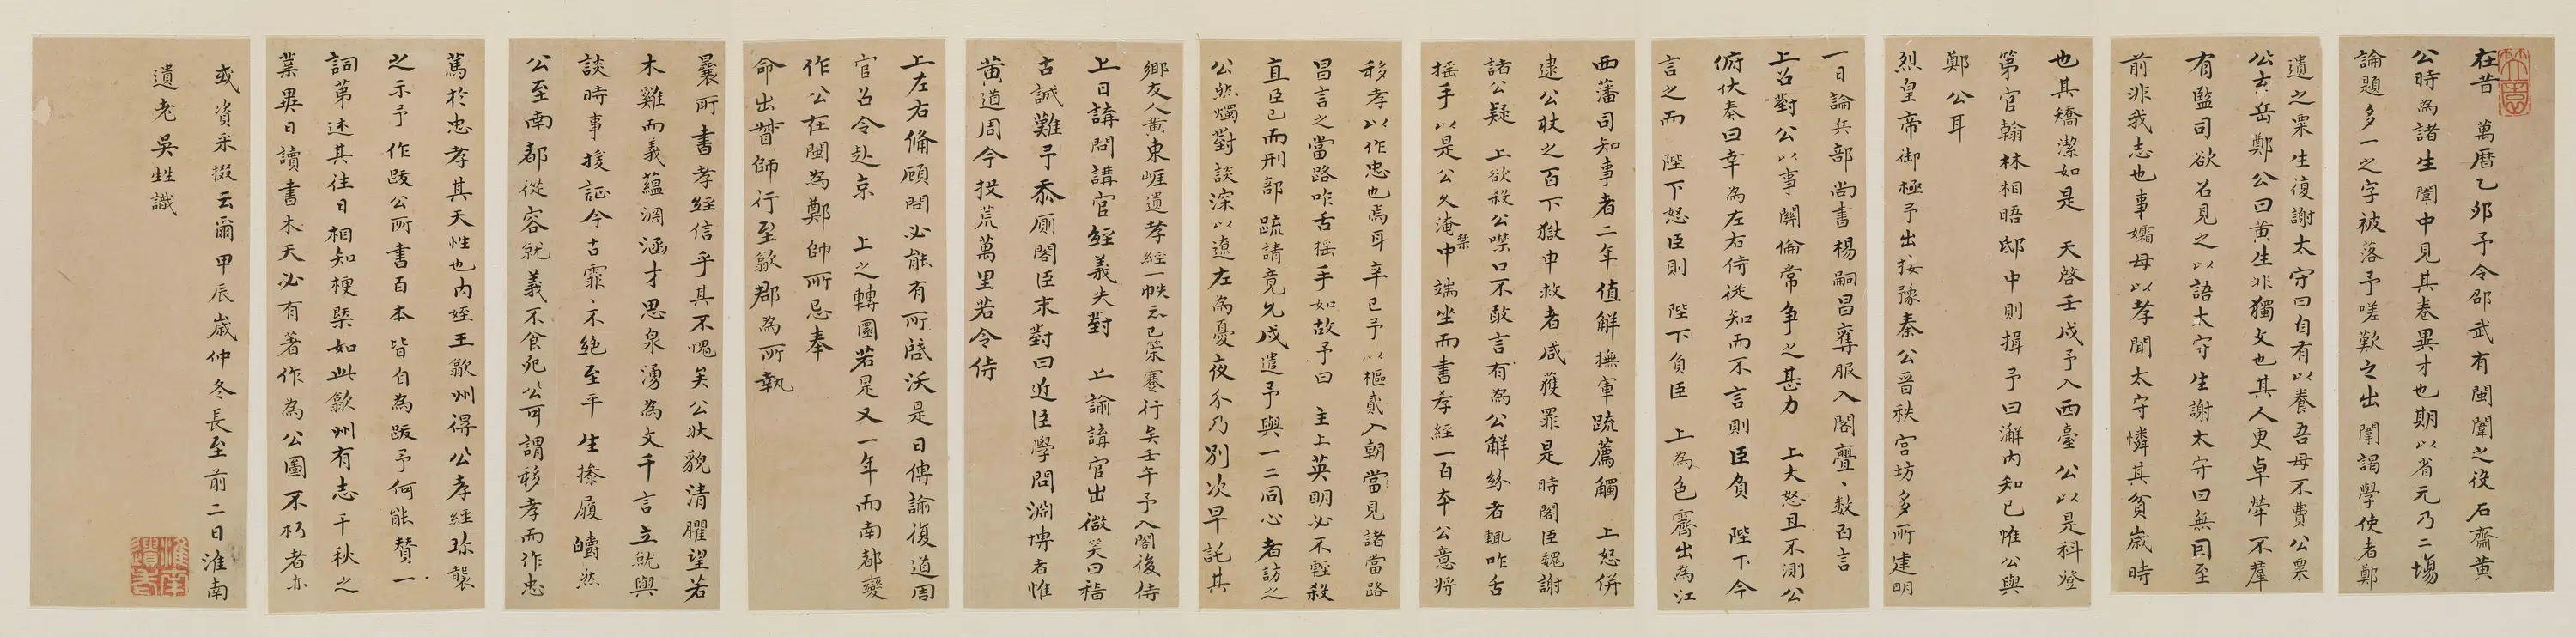 在昔　萬曆乙卯予令邵武有閩闈之役石齋黃
公時為諸生闈中見其卷異才也期以省元乃二場
論題多一之字被落予嗟歎之出闈謁學使者鄭
公玄岳鄭公曰黃生非獨文也其人更卓犖不羣
有監司欲召見之以語太守生謝太守曰無因至
前非我志也事孀母以孝聞太守憐其貧歲時
遺之粟生復謝太守曰自有以養吾母不費公粟
也其矯潔如是　天啓壬戌予入西臺　公以是科登
第官翰林相晤邸中則揖予曰澥內知己惟公與
鄭公耳
烈皇帝御極予出按豫秦公晉秩宮坊多所建明
一日論兵部尚書楊嗣昌奪服入閣疊、數百言
上召對公以事關倫常爭之甚力　上大怒且不測公
俯伏奏曰幸為左右侍從知而不言則臣負　陛下今
言之而　陛下怒臣則　陛下負臣　上為色霽出為江
西藩司知事者二年值解撫軍疏薦觸　上怒併
逮公杖之百下獄申救者咸獲罪是時閣臣魏謝
諸公疑　上欲殺公噤口不敢言有為公解紛者輒咋舌
搖手以是公久淹禁中　端坐而書孝經一百本公意將
移孝以作忠也焉耳辛巳予以樞貳入朝當見諸當路
昌言之當路咋舌搖手如故予曰　主上英明必不輕殺
直臣已而刑部　疏請竟允戍遣予與一二同心者訪之
公然燭對談深以遼左為憂夜分乃別次早託其
鄉友人黃東崕遺孝經一帙云已策蹇行矣壬午予入閣後侍
上日講問講官經義失對　上諭講官出微笑曰稽
古誠難予忝厠閣臣末對曰近臣學問淵博者惟
黃道周今投荒萬里若令侍
上左右備顧問必能有所啓沃是日傳諭復道周
官召令赴京　上之轉圜若是又一年而南都變
作公在閩為鄭帥所忌奉
命出督師行至歙郡為所執
曩所書孝經信乎其不愧矣公狀貌清臞望若
木雞而義蘊淵涵才思泉湧為文千言立就與
談時事援証今古霏、不絕至平生操履皭然
公至南都從容就義不食死公可謂移孝而作忠
篤於忠孝其天性也內姪王歙州得公孝經珍襲
之示予作跋公所書百本皆自為跋予何能贊一
詞第述其往日相知梗槩如此歙州有志千秋之
業異日讀書木天必有著作為公圖不朽者亦
或資采掇云爾甲辰歲仲冬長至前二日淮南
遺老吳甡識